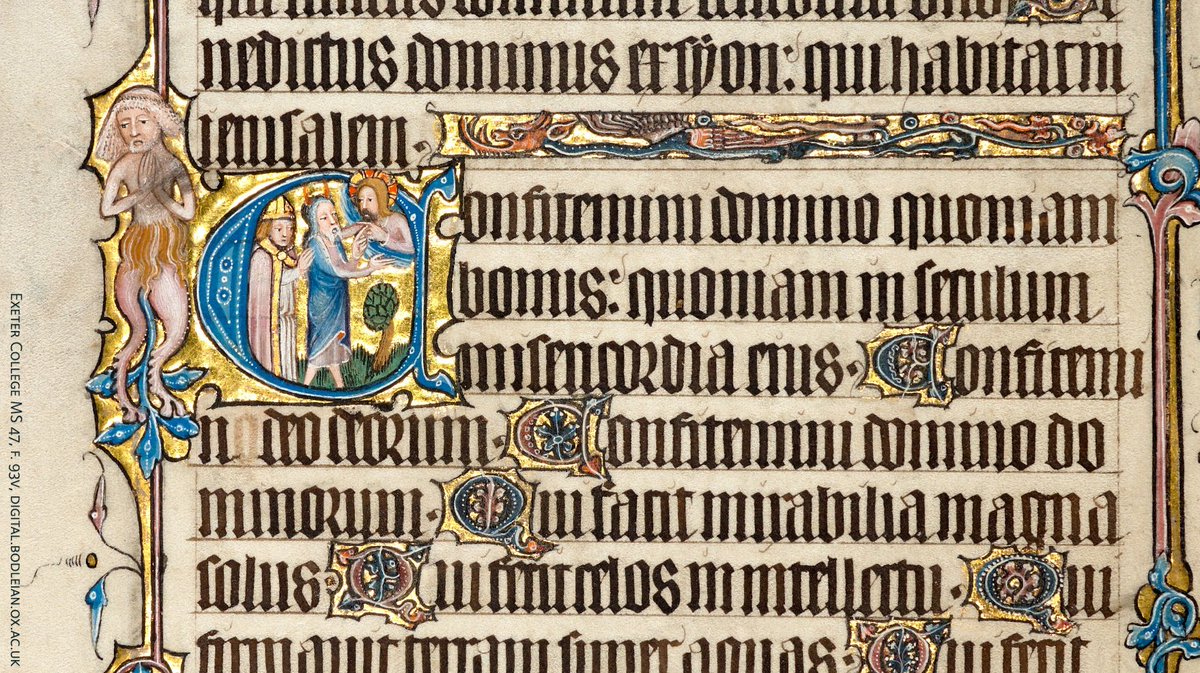 nedictus dominus ex syon: qui habitat in
ierusalem.
Confitemini domino quoniam
bonus: quoniam in seculum
misericordia eius. Confitemi
ni deo deorum. Confitemini domino do
minorum. Qui facit mirabilia magna
solus. Qui fecit celos in intellectu. Qui
firmauit terram super aquas. Qui fecit
EXETER COLLEGE MS 47, F. 93V, DIGITAL.BODLEIAN.OX.AC.UK